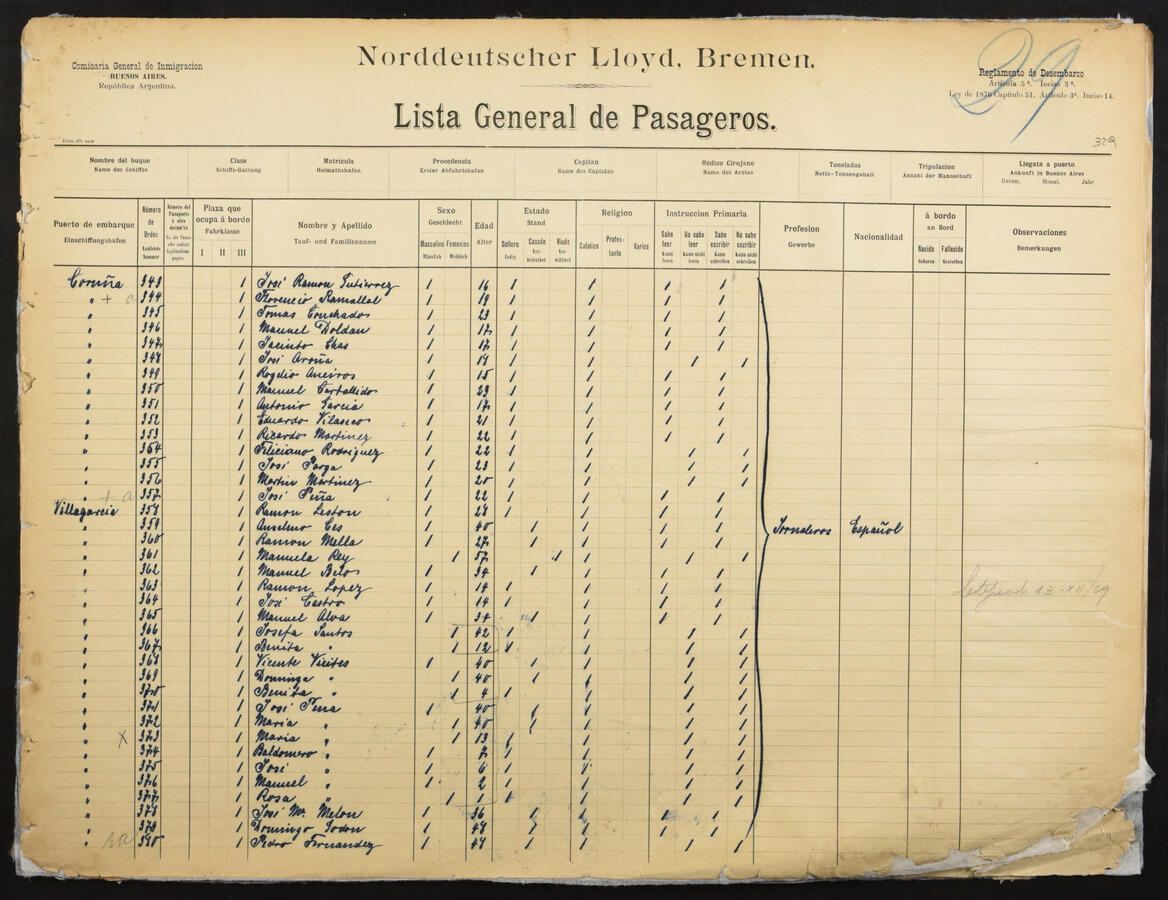 Norddeutscher Lloyd, Bremen.
Comisaria General de Inmigracion
BUENOS AIRES.
República Argentina.
29
Reglamento de Desembarco
Artícula 5º. Inciso 3º.
Ley de 1876 Capítulo 51. Artículo 3º. Inciso 14.
Lista General de Pasageros.
329
Nombre del buque Clase Matricula Procedencia Capitan Médico Cirujano Toneladas Tripulacion Llegata a puerto
Name des Schiffes Schiffs-Gattung Heimathshafen Erster Abfahrtshafen Name des Capitäns Name des Arztes Netto-Tonnengehalt Anzahl der Mannschaft Ankunft in Buenos Aires
Datum, Monat. Jahr
Puerto de embarque Número de Orden Plaza que ocupa á bordo Nombre y Apellido Sexo Edad Estado Religion Instruccion Primaria Profesion Nacionalidad á bordo Observaciones
Einschiffungshafen Laufende Nummer Fahrklasse Tauf- und Familienname Geschlecht Alter Stand Gewerbe an Bord Bemerkungen
I II III Masculino Femenino Soltero Casado Viudo Catolico Protestante Varios Sabe leer No sabe leer Sabe escribir No sabe escribir Nacido Fallecido
Männlich Weiblich Ledig Verheirathet Verwittwet Kann lesen Kann nicht lesen Kann schreiben Kann nicht schreiben Geboren Gestorben
Coruña 343 1 José Ramon Gutierrez 1 16 1 1 1 1
" + a 344 1 Florencio Ramallal 1 19 1 1 1 1
" 345 1 Tomas Conchado 1 23 1 1 1 1
" 346 1 Manuel Doldan 1 17 1 1 1 1
" 347 1 Jacinto Chas 1 17 1 1 1 1
" 348 1 José 1 1 1 1 1
" 349 1 Rogelio Aneiros 1 15 1 1 1 1
" 350 1 Manuel Carballido 1 23 1 1 1 1
" 351 1 Antonio Garcia 1 17 1 1 1 1
" 352 1 Eduardo Vilaseco 1 21 1 1 1 1
" 353 1 Ricardo Martinez 1 22 1 1 1 1
" 354 1 Feliciano Rodriguez 1 22 1 1 1 1
" 355 1 José Parga 1 23 1 1 1 1
" 356 1 Martin Martinez 1 20 1 1 1 1
" + a 357 1 José Piña 1 22 1 1 1 1
Villagarcia 358 1 Ramon Leston 1 28 1 1 1 1
" 359 1 Anselmo Ces 1 40 1 1 1 1 Jornaleros Español
" 360 1 Ramon Mella 1 27 1 1 1 1
" 361 1 Manuela Rey 1 57 1 1 1 1
" 362 1 Manuel 1 34 1 1 1 1
" 363 1 Ramon Lopez 1 14 1 1 1 1 13-XII/29
" 364 1 José Castro 1 14 1 1 1 1
" 365 1 Manuel Alva 1 34 1 1 1 1
" 366 1 Josefa Santos 1 42 1 1 1 1
" 367 1 Benita " 1 12 1 1 1 1
" 368 1 Vicente Vieites 1 40 1 1 1 1
" 369 1 Dominga " 1 40 1 1 1 1
" 370 1 Benita " 1 4 1 1 1 1
" 371 1 José Pena 1 40 1 1 1 1
" 372 1 Maria " 1 40 1 1 1 1
" X 373 1 Maria " 1 13 1 1 1 1
" 374 1 Baldomero " 1 7 1 1 1 1
" 375 1 José " 1 6 1 1 1 1
" 376 1 Manuel " 1 2 1 1 1 1
" 377 1 Rosa " 1 1 1 1 1 1
" 378 1 José Mª Melon 1 36 1 1 1 1
" 379 1 Domingo 1 48 1 1 1 1
" 380 1 Pedro Fernandez 1 1 1 1 1